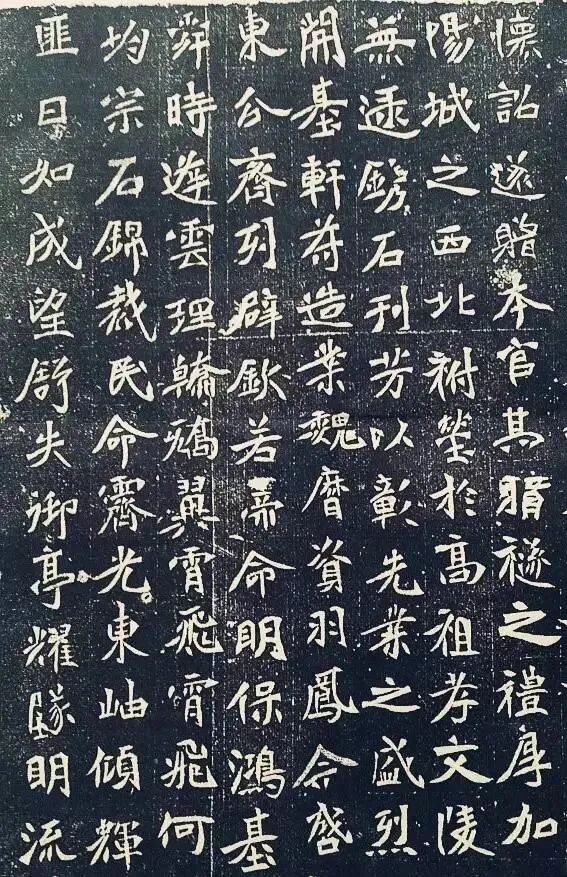 懷詔遂贈本官其賵襚之禮厚加
陽城之西北祔塋於高祖孝文陵
無逯鐫石刊芳以彰先業之盛烈
開基軒苻造業魏曆資羽鳳命啓
東公齊列辟欽若帝命明保鴻基
舜時遊雲理翼霄飛霄飛何
均宗石錦裁民命霽光東岫傾輝
匪日如成望舒失御亭耀隊明流